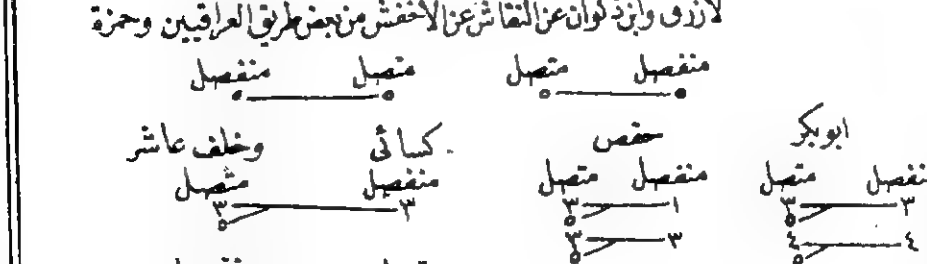 لازرق وابن ذكوان عن النقاش عن الأخفش من بعض طريق العراقيين وحمزة
منفصل متصل متصل منفصل
٥ ٥ ٥ ٥
ابوبكر حفص كسائى وخلف عاشر
نفصل متصل منفصل متصل منفصل متصل
٣ ٣ ١ ٣ ٣ ٣
٥ ٥ ٥
٤ ٤ ٣ ٣
٥ ٥